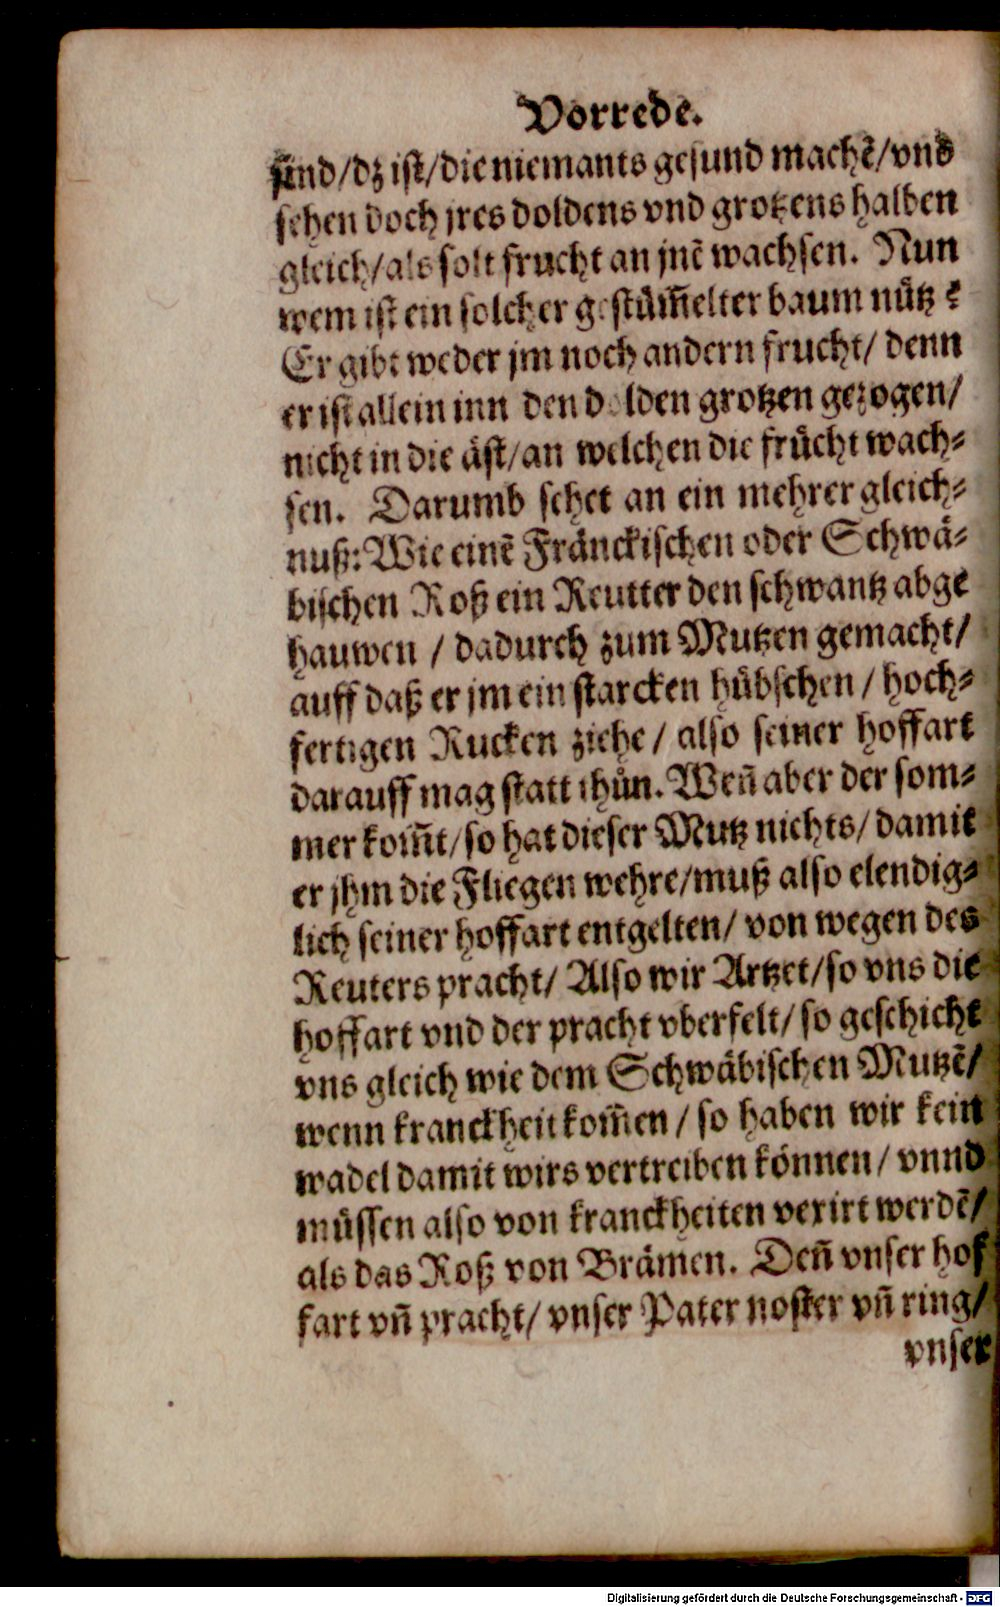 Vorrede.
sind/dz ist/die niemants gesund machē/vnd
sehen doch jres doldens vnd grotzens halben
gleich/als solt frucht an jnē wachsen. Nun
wem ist ein solcher gestüm̄elter baum nütz?
Er gibt weder jm noch andern frucht/ denn
er ist allein inn den dolden grotzen gezogen/
nicht in die äst/an welchen die frücht wach-
sen. Darumb sehet an ein mehrer gleich-
nuß: Wie einē Fränckischen oder Schwä-
bischen Roß ein Reutter den schwantz abge
hauwen / dadurch zum Mutzen gemacht/
auff daß er jm ein starcken hübschen / hoch-
fertigen Rucken ziehe / also seiner hoffart
darauff mag statt thůn. Weñ aber der som-
mer kom̄t/so hat dieser Mutz nichts/ damit
er jhm die Fliegen wehre/muß also elendig-
lich seiner hoffart entgelten/ von wegen des
Reuters pracht/ Also wir Artzet/so vns die
hoffart vnd der pracht vberfelt/ so geschicht
vns gleich wie dem Schwäbischen Mutzē/
wenn kranckheit kom̄en / so haben wir kein
wadel damit wirs vertreiben können/ vnnd
müssen also von kranckheiten vexirt werdē/
als das Roß von Brämen. Deñ vnser hof
fart vñ pracht/ vnser Pater noster vñ ring/
vnser
Digitalisierung gefördert durch die Deutsche Forschungsgemeinschaft - DFG